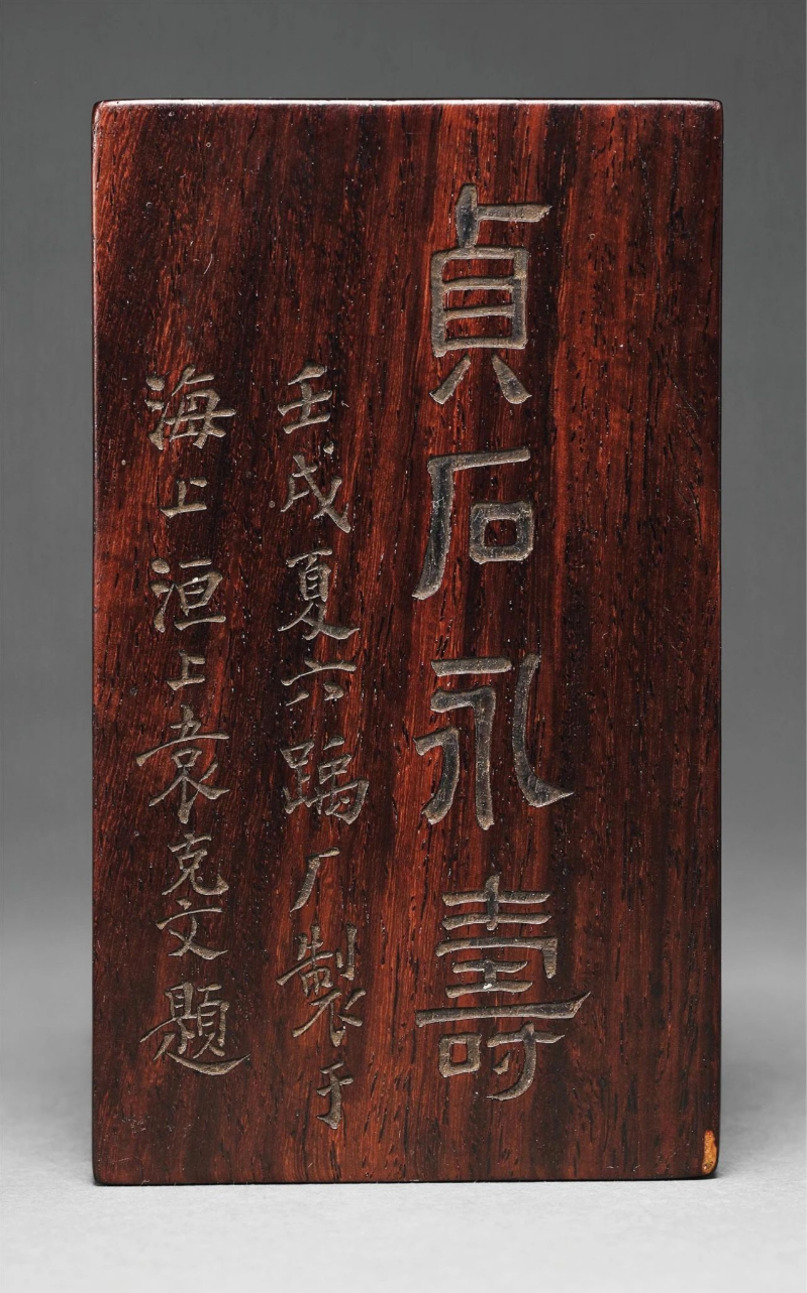 貞石永壽
壬戌夏六蹋厂製于
海上洹上袁克文題